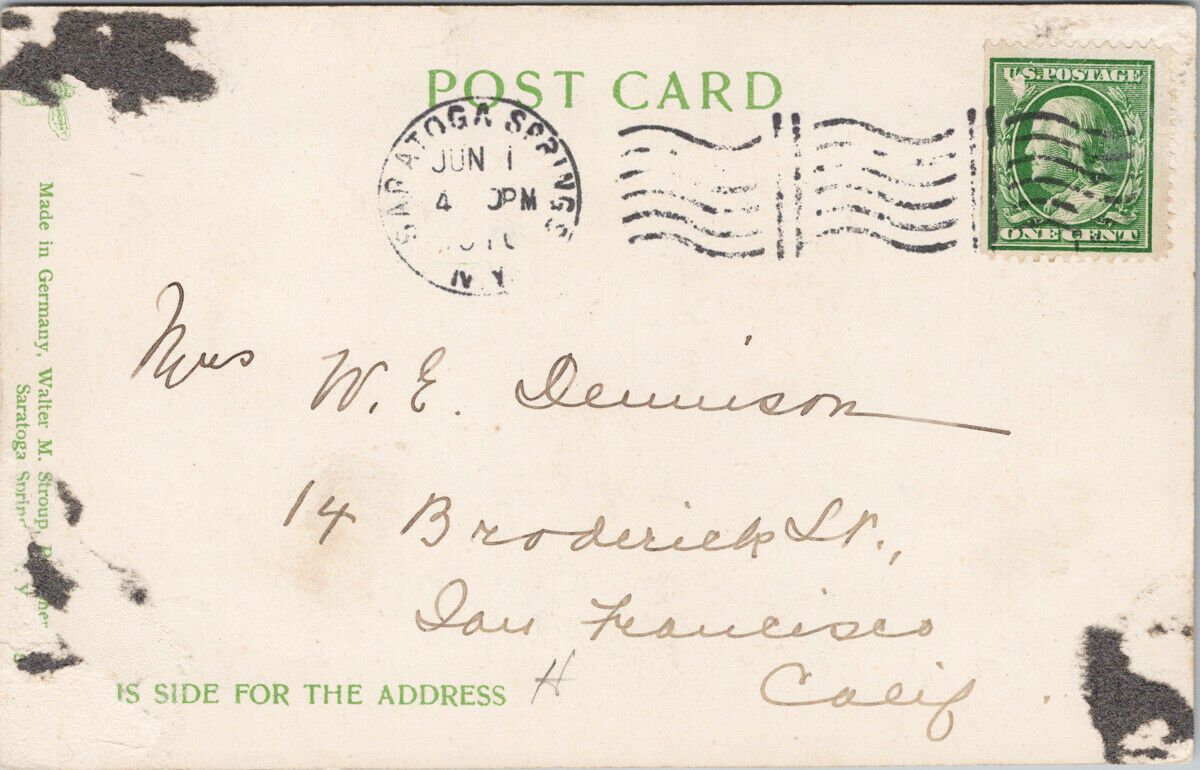 POST CARD
U.S. POSTAGE
ONE CENT
SARATOGA SPRINGS
JUN 1
4 PM
N.Y.
Mrs W. E. Dennison
14 Broderick St.,
San Francisco
Calif.
IS SIDE FOR THE ADDRESS
H
Made in Germany, Walter M. Stroup,
Saratoga